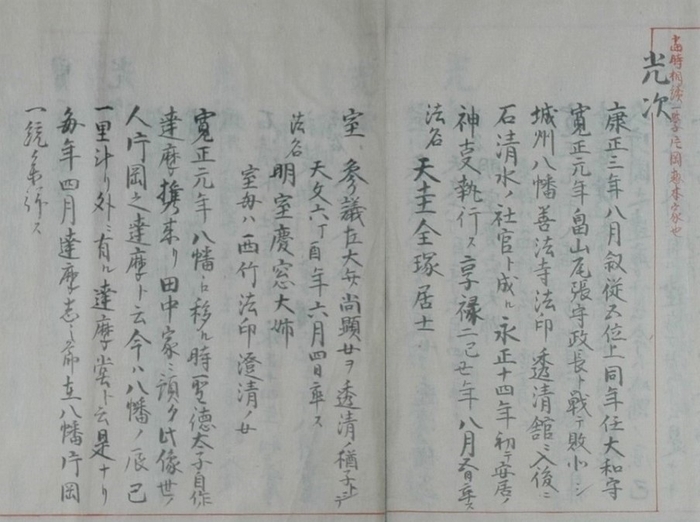 光次
康正三年八月叙従五位上同年任大和守
寛正元年畠山尾張守政長ト戦テ敗北シ
城州八幡善法寺法印透清館ニ入後ニ
石清水ノ社官ト成ル永正十四年初テ安居ノ
神事執行ス享禄二己丑年八月 卒ス
法名 天圭全琢居士
室、参議左大弁尚顕女ヲ透清ノ猶子トシテ
天文六丁酉年六月四日卒ス
法名 明室慶窓大姉
室母ハ西竹法印澄清ノ女
寛正元年八幡ニ移ル時聖徳太子自作
達摩携来リ田中家ニ預ク此像世ノ
人片岡之達摩ト云今ハ八幡ノ辰巳
一里斗リ外ニ有ル達摩堂ト云是ナリ
毎年四月達摩 在八幡片岡
一統 ス